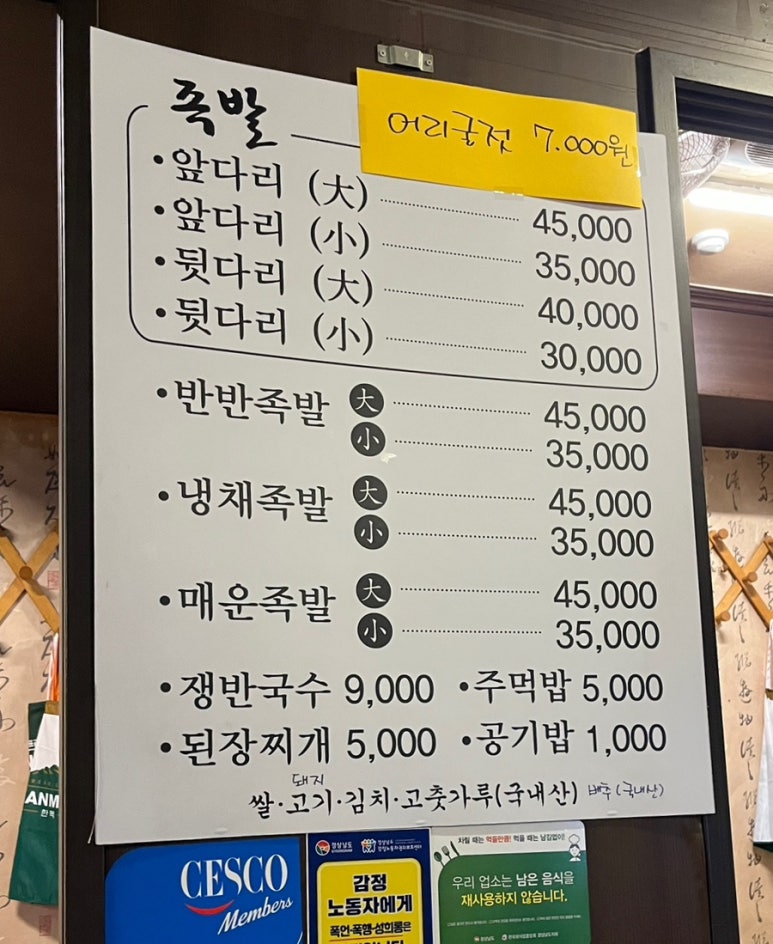 족발
어리굴젓 7.000원
•앞다리 (大) 45,000
•앞다리 (小) 35,000
•뒷다리 (大) 40,000
•뒷다리 (小) 30,000
•반반족발 大 45,000
小 35,000
•냉채족발 大 45,000
小 35,000
•매운족발 大 45,000
小 35,000
•쟁반국수 9,000 •주먹밥 5,000
•된장찌개 5,000 •공기밥 1,000
돼지
쌀·고기·김치·고춧가루(국내산) 배추(국내산)
CESCO
Members
경상남도
감정
노동자에게
폭언·폭행·성희롱은
차릴 때는 먹을만큼! 먹을 때는 남김없이!
우리 업소는 남은 음식을
재사용하지 않습니다.